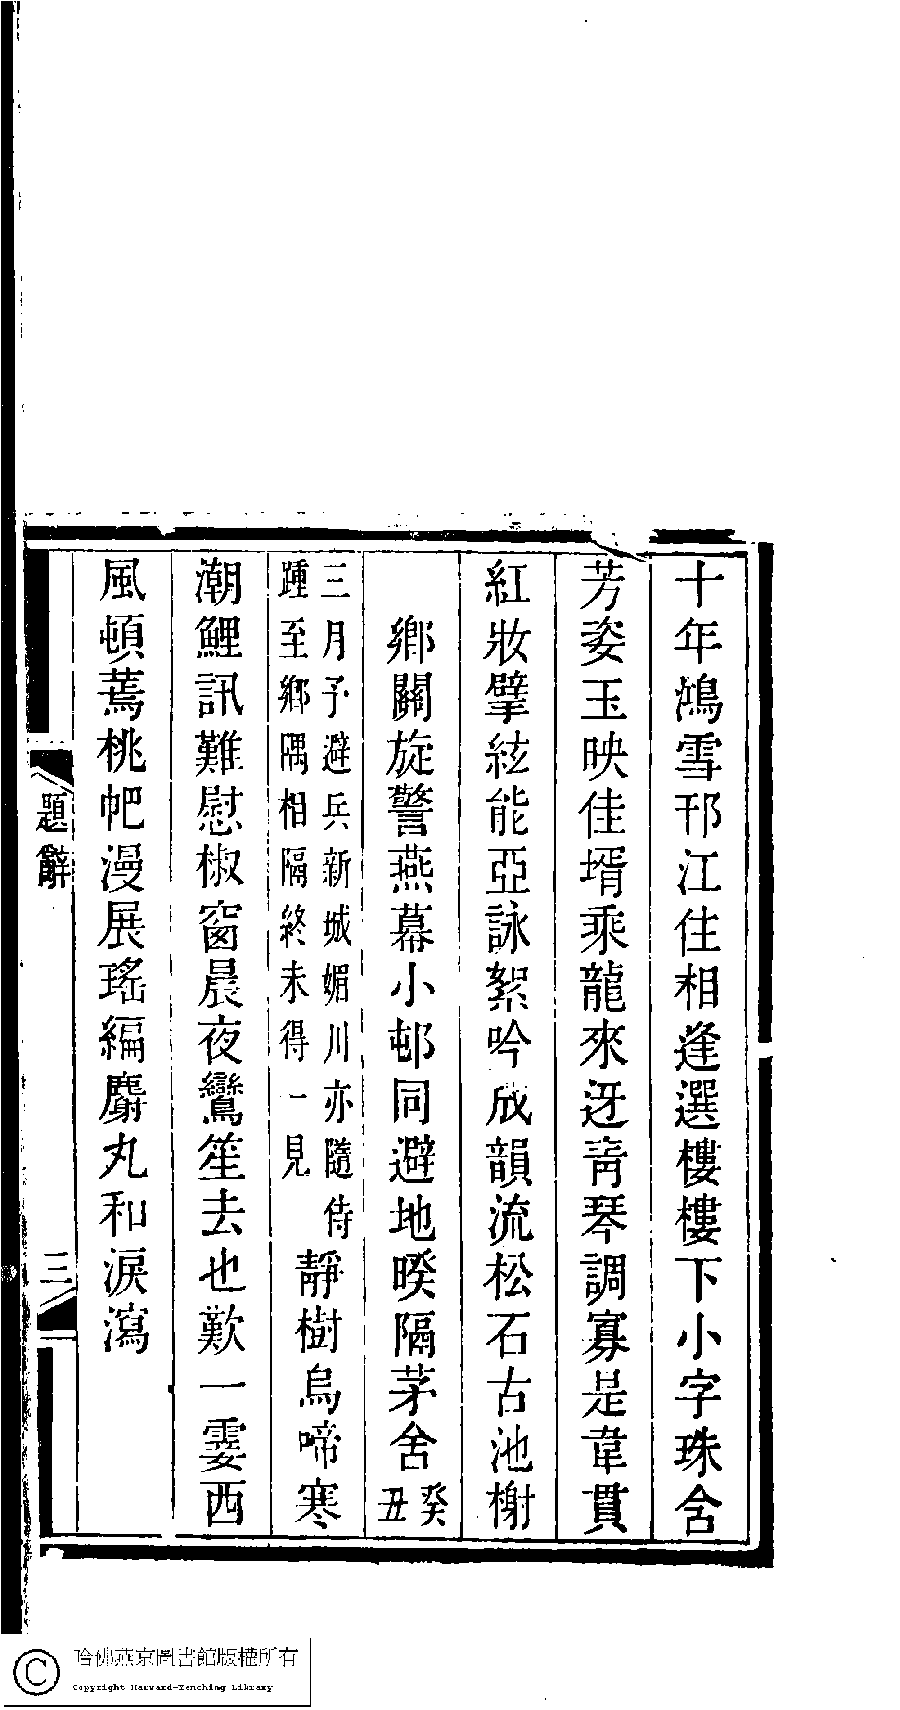 十年鴻雪邗江住相逢選樓樓下小字珠含
芳姿玉映佳壻乘龍來迓青琴調寡是韋貫
紅妝擘絃能亞詠絮吟成韻流松石古池榭
鄉關旋警燕幕小邨同避地暌隔茅舍癸丑
三月予避兵新城媚川亦隨侍
踵至鄉隅相隔終未得一見
靜樹烏啼寒
潮鯉訊難慰椒窗晨夜鸞笙去也歎一霎西
風頓蔫桃帊漫展瑤編麝丸和淚瀉
題辭
三
哈佛燕京圖書館版權所有
Copyright Harvard-Yenching Library